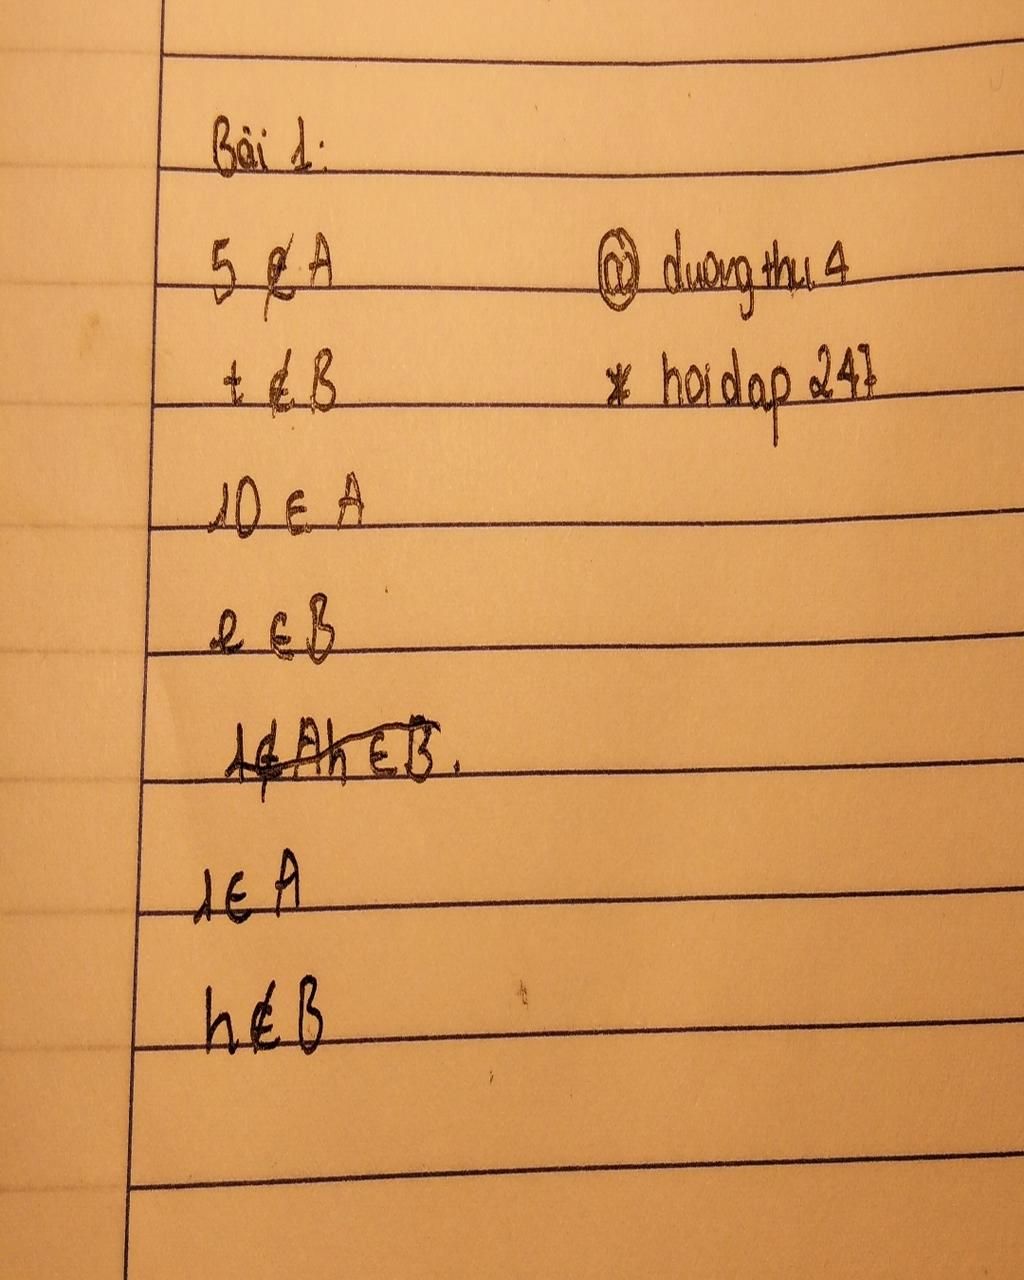 Bài 1:
5 ∉ A @ duongthu4
t ∉ B * hoidap 247
10 ∈ A
e ∈ B
1 ∉ A h ∈ B.
1 ∈ A
h ∉ B